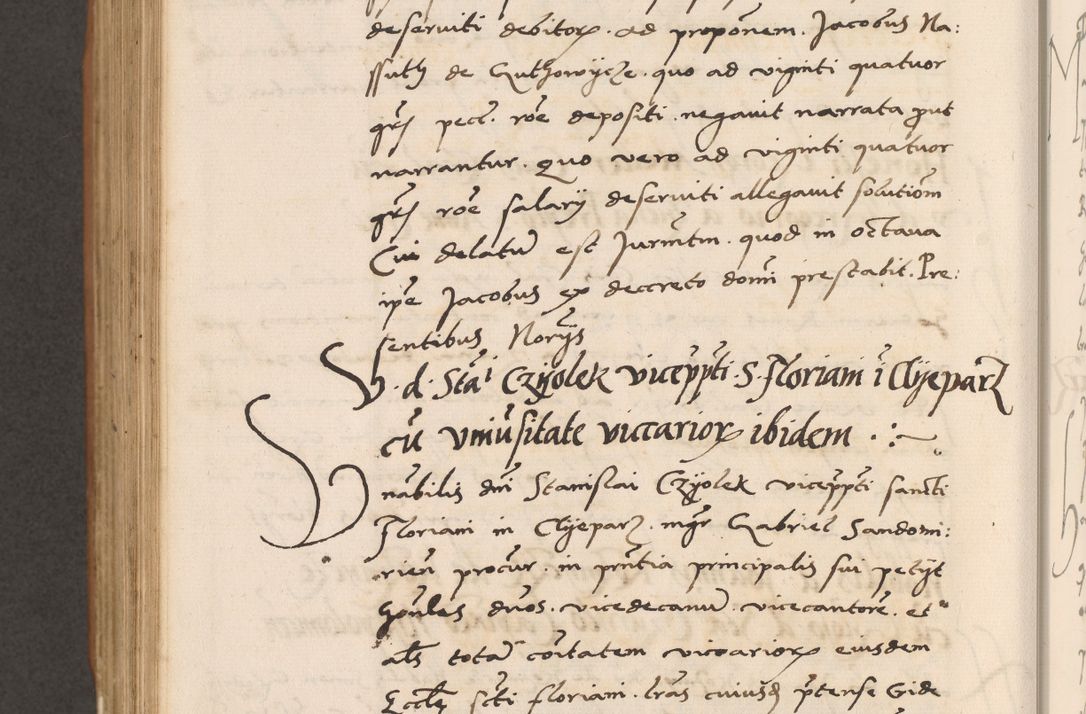 deserviti debitorꝝ. ad proponem. Jacobus Na:
ssuth de Guthowycze. quo ad viginti quatuor
grs pecc. roe depositi. negavit narrata prout
narrantur. Quo vero ad viginti quatuor
grs roe salarÿ deserviti allegavit solutiom
Cui delatu est Jurmtm. quod in octava
ipe Jacobus ex decreto domi prestabit. Pre:
sentibus Norijs
V. d. Stai Czÿolek viceppti. S. Floriani i Clÿeparz
cu uniusitate viccariorꝝ ibidem
nabilis dni Stanislai Czÿolek viceppti sancti
Floriani in Clÿeparz. mgr Gabriel Sandomi:
rien procur. in pntia principalis sui petijt
honles duos. vicedecanu. vicecantore. et
als tota coitatem viccariorꝝ eiusdem
Eccle scti floriani. lras cuiusd ptense Gide